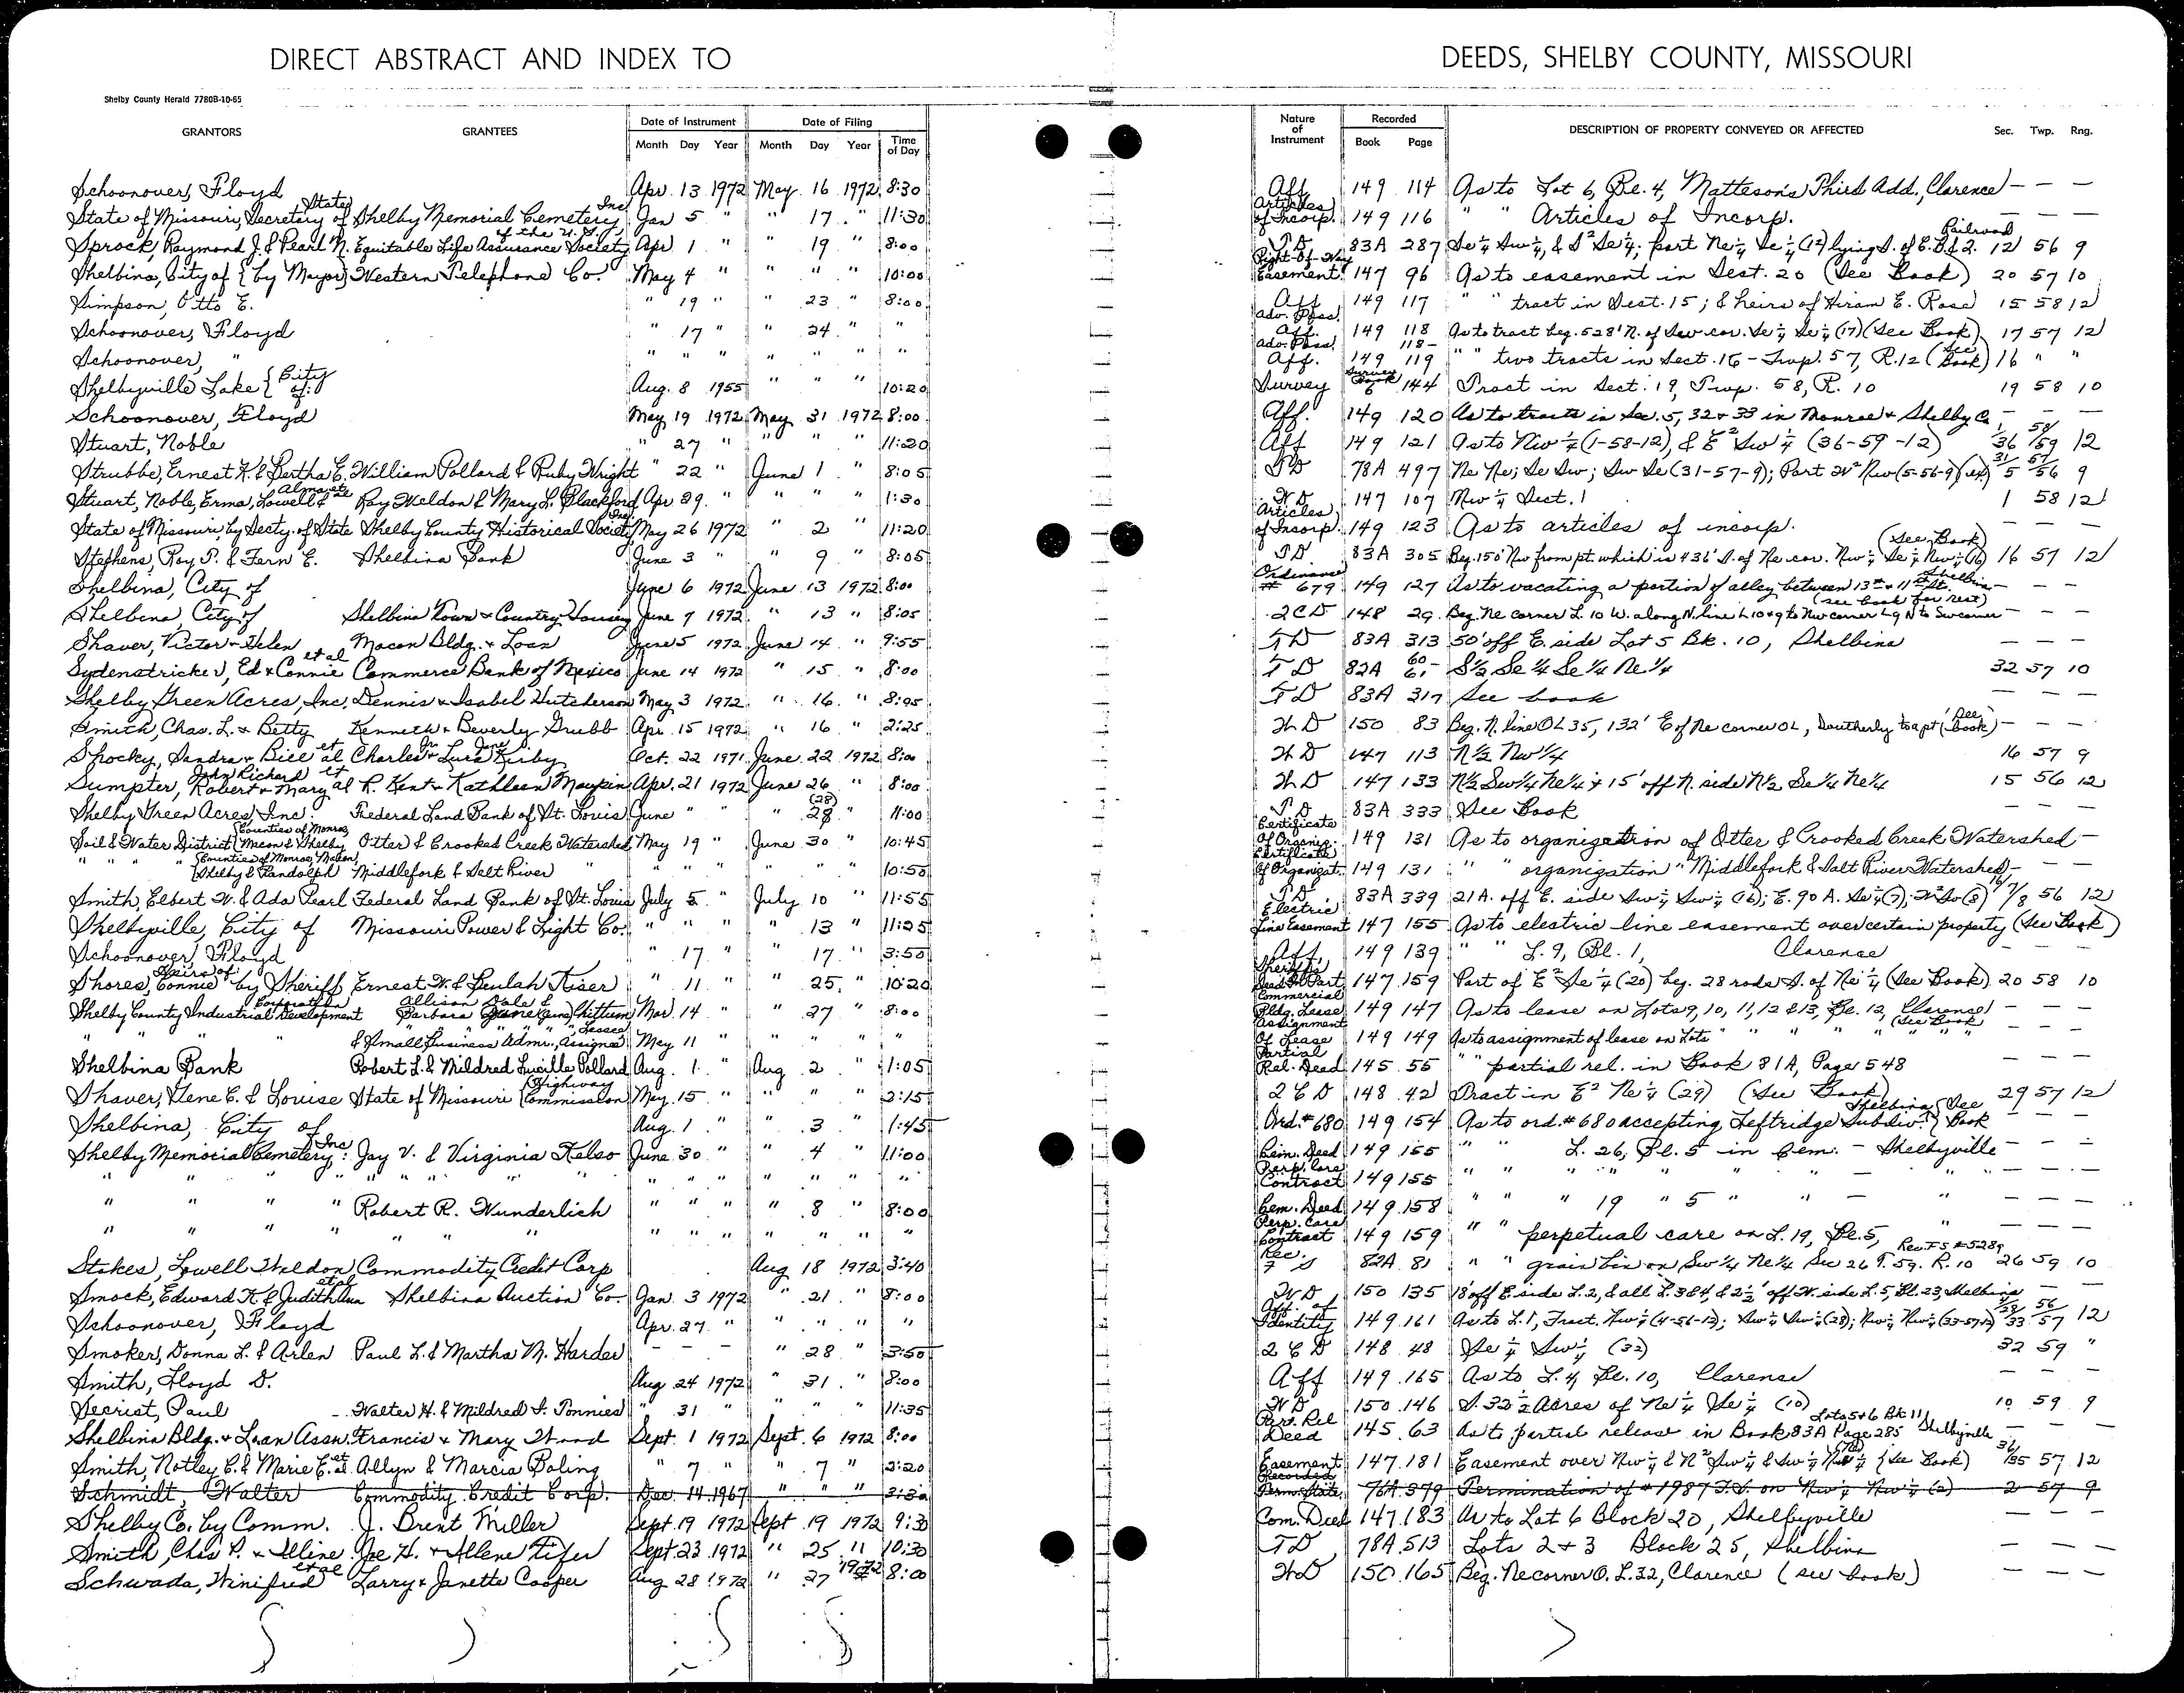 DIRECT ABSTRACT AND INDEX TO DEEDS, SHELBY COUNTY, MISSOURI
Shelby County Herald 7780B-10-65
GRANTORS GRANTEES Date of Instrument Month Day Year Date of Filing Month Day Year Time of Day Nature of Instrument Recorded Book Page DESCRIPTION OF PROPERTY CONVEYED OR AFFECTED Sec. Twp. Rng.
Schoonover, Floyd Apr. 13 1972 May 16 1972 8:30 Aff 149 114 As to Lot 6, Bl. 4, Matteson's Third Add., Clarence — — —
State of Missouri, Secretary of State Shelby Memorial Cemetery, Inc. Jan 5 " " 17 " 11:30 Articles of Incorp. 149 116 " " Articles of Incorp. — — —
Sprock, Raymond J. & Pearl N. Equitable Life Assurance Society of the U.S. Apr 1 " " 19 " 8:00 T D 83A 287 Se ¼ Sw ¼, & S² Se ¼; part Ne ¼ Se ¼ (12) lying S. of C.B. & Q. Railroad 12 56 9
Shelbina, City of (by Mayor) Western Telephone Co. May 4 " " " " 10:00 Right-of-Way Easement 147 96 As to easement in Sect. 20 (See Book) 20 57 10
Simpson, Otto E. " 19 " " 23 " 8:00 Aff 149 117 " " tract in Sect. 15; & heirs of Hiram E. Rose 15 58 12
Schoonover, Floyd " 17 " " 24 " " Adv. Poss. Aff. 149 118 As to tract beg. 528' N. of Sw cor. Se ¼ Se ¼ (17) (See Book) 17 57 12
Schoonover, " " " " " " " " Adv. Poss. Aff. 149 118-119 " " two tracts in Sect. 16 - Twp. 57, R. 12 (See Book) 16 " "
Shelbyville Lake { City of: Aug. 8 1955 " " " 10:20 Survey Survey Book 6 144 Tract in Sect. 19, Twp. 58, R. 10 19 58 10
Schoonover, Floyd May 19 1972 May 31 1972 8:00 Aff. 149 120 As to tracts in Sec. 5, 32 & 33 in Monroe & Shelby Co. — — —
Stuart, Noble " 27 " " " " 11:20 Aff 149 121 As to Nw ¼ (1-58-12), & E² Sw ¼ (36-59-12) 1/36 58/59 12
Strubbe, Ernest K. & Bertha E. William Pollard & Ruby Wright " 22 " June 1 " 8:05 T D 78A 497 Ne Ne; Se Sw; Sw Se (31-57-9); Part W² Nw (5-56-9) 31/5 57/56 9
Stuart, Noble, Erma, Lowell & Ray Weldon & Mary L. Blackford Apr 29 " " " " 1:30 W D 147 107 Nw ¼ Sect. 1 1 58 12
State of Missouri, by Secty. of State Shelby County Historical Society Inc. May 26 1972 " 2 " 11:20 Articles of Incorp. 149 123 As to articles of incorp. — — —
Stephens, Roy T. & Fern E. Shelbina Bank June 3 " " 9 " 8:05 T D 83A 305 Beg. 150' Nw from pt. which is 436' S. of Ne cor. Nw ¼ Se ¼ Nw ¼ (16) (See Book) 16 57 12
Shelbina, City of June 6 1972 June 13 1972 8:00 Ordinance # 679 149 127 As to vacating a portion of alley between 13th & 11th St. Shelbina — — —
Shelbina, City of Shelbina Town & Country Housing June 7 1972 " 13 " 8:05 2CD 148 29 Beg. Ne corner L. 10 W. along N. line L 10 & 9 to Nw corner L 9 N to Sw corner (see book for rest) — — —
Shaver, Victor & Helen Macon Bldg. & Loan June 5 1972 June 14 " 9:55 T D 83A 313 50' off E. side Lot 5 Bk. 10, Shelbina — — —
Sydenstricker, Ed & Connie et al Commerce Bank of Mexico June 14 1972 " 15 " 8:00 T D 82A 60- S½ Se ¼ Se ¼ Ne ¼ 32 57 10
Shelby Green Acres, Inc. Dennis & Isabel Hutcherson May 3 1972 " 16 " 8:05 T D 83A 317 See book — — —
Smith, Chas. L. & Betty Kenneth & Beverly Grubb Apr. 15 1972 " 16 " 2:25 W D 150 83 Beg. N. line OL 35, 132' E of Ne corner OL, Southerly to a pt (See book) — — —
Spocky, Sandra & Bill et al Charles Jr. & Lura Jane Kirby Oct. 22 1971 June 22 1972 8:00 W D 147 113 N½ Nw ¼ 16 57 9
Sumpter, John Richard, Robert & Mary et al R. Kent & Kathleen Maupin Apr. 21 1972 June 26 " 8:00 W D 147 133 N½ Sw ¼ Ne ¼ & 15' off N. side N½ Se ¼ Ne ¼ 15 56 12
Shelby Green Acres Inc. Federal Land Bank of St. Louis June " " 28 (28) " 11:00 T D 83A 333 See Book — — —
Soil & Water District (Counties of Monroe, Macon & Shelby Otter & Crooked Creek Watershed May 19 " June 30 " 10:45 Certificate Of Organiz. 149 131 As to organization of Otter & Crooked Creek Watershed —
" " " (Counties of Monroe, Macon, Shelby & Randolph Middlefork & Salt River " " " " " " " 10:50 Certificate Of Organizat. 149 131 " " organization " Middlefork & Salt River Watershed, — — —
Smith, Elbert W. & Ada Pearl Federal Land Bank of St. Louis July 5 " July 10 " 11:55 T D 83A 339 21 A. off E. side Sw ¼ Sw ¼ (16); E. 90 A. Se ¼ (7); W² Sw (8) 16/7/8 56 12
Shelbyville, City of Missouri Power & Light Co. " " " " 13 " 11:25 Electric Line Easement 147 155 As to electric line easement over certain property (See Book)
Schoonover, Floyd " 17 " " 17 " 3:50 Aff. 149 139 " " L. 9, Bl. 1, Clarence — — —
Shores, Connie Heirs of by Sheriff Ernest W. & Beulah Kiser " 11 " " 25 " 10:20 Sheriff's Deed In Part. 147 159 Part of E² Se ¼ (20) beg. 28 rods S. of Ne ¼ (See Book) 20 58 10
Shelby County Industrial Development Corporation Allison Dale & Barbara June Chittum Mar. 14 " " 27 " 8:00 Commercial Bldg. Lease 149 147 As to lease on Lots 9, 10, 11, 12 & 13, Bl. 12, Clarence — — —
" " " " & Small Business Admr., Assignee, Lessee May 11 " " " " " Assignment Of Lease 149 149 As to assignment of lease on Lots " " " " " " (See Book) — — —
Shelbina Bank Robert L. & Mildred Lucille Pollard Aug. 1 " Aug 2 " 1:05 Partial Rel. Deed 145 55 " " partial rel. in Book 81A, Page 548 — — —
Shaver, Gene C. & Louise State of Missouri (Highway Commission) May 15 " " " " 2:15 2 C D 148 42 Tract in E² Ne ¼ (29) (See Book) 29 57 12
Shelbina, City of Aug. 1 " " 3 " 1:45 Ord. # 680 149 154 As to ord. # 680 accepting Leftridge Subdiv. Shelbina (See Book — — —
Shelby Memorial Cemetery, Inc. Jay V. & Virginia Kelso June 30 " " 4 " 11:00 Cem. Deed 149 155 " " L. 26, Bl. 5 in Cem. - Shelbyville — — —
" " " " " " " " " " " " " " Perp. Care Contract 149 155 " " " " " " " — " — — —
" " " " Robert R. Wunderlich " " " " 8 " 8:00 Cem. Deed 149 158 " " " 19 " 5 " " — " — — —
" " " " " " " " " " " " " Perp. Care Contract 149 159 " " perpetual care on L. 19, Bl. 5, " — — —
Stokes, Lowell Weldon Commodity Credit Corp Aug 18 1972 3:40 Rec. F S 82A 81 " " grain bin on Sw ¼ Ne ¼ Sec 26 T. 59. R. 10 Rec. F S # 5289 26 59 10
Smock, Edward K. & Judith Ann et al Shelbina Auction Co. Jan. 3 1972 " 21 " 8:00 W D 150 135 18' off E. side L. 2, & all L. 3 & 4, & 2½' off W. side L. 5, Bl. 23, Shelbina
Schoonover, Floyd Apr. 27 " " " " " Aff. of Identity 149 161 As to L. 1, Fract. Nw ¼ (4-56-12); Sw ¼ Sw ¼ (28); Nw ¼ Nw ¼ (33-57-12) 4/28/33 56/57 12
Smoker, Donna L. & Arlen Paul L. & Martha M. Harder — — — " 28 " 3:50 2 C D 148 48 Se ¼ Sw ¼ (32) 32 59 "
Smith, Floyd D. Aug 24 1972 " 31 " 8:00 Aff 149 165 As to L. 4, Bl. 10, Clarence — — —
Secrist, Paul Walter H. & Mildred I. Ponnies " 31 " " " " 11:35 W D 150 146 S. 32 ½ Acres of Ne ¼ Se ¼ (10) 10 59 9
Shelbina Bldg. & Loan Assn. Francis & Mary Wood Sept. 1 1972 Sept. 6 1972 8:00 Part. Rel Deed 145 63 As to partial release in Book 83A Page 285 Lots 5 & 6 Bk 11 Shelbyville — — —
Smith, Notley C. & Marie E. et al Allyn & Marcia Boling " 7 " " 7 " 2:20 Easement 147 181 Easement over Nw ¼ & N² Sw ¼ & Sw ¼ Nw ¼ (See Book) 36/35 57 12
Schmidt, Walter Commodity Credit Corp. Dec. 14 1967 " " " 2:30 Recorded Term. State. 76A 379 Termination of # 1987 F.S. on Nw ¼ Nw ¼ (2) 2 57 9
Shelby Co. by Comm. J. Brent Miller Sept 19 1972 Sept 19 1972 9:30 Com. Deed 147 183 As to Lot 6 Block 20, Shelbyville — — —
Smith, Chas P. & Illine Joe H. & Allene Fifer Sept. 23 1972 " 25 " 10:30 TD 78A 513 Lots 2 & 3 Block 25, Shelbina — — —
Schwada, Winifred et al Larry & Janette Cooper Aug 28 1972 " 27 1972 8:00 WD 150 165 Beg. Ne corner O. L. 32, Clarence (see book) — — —